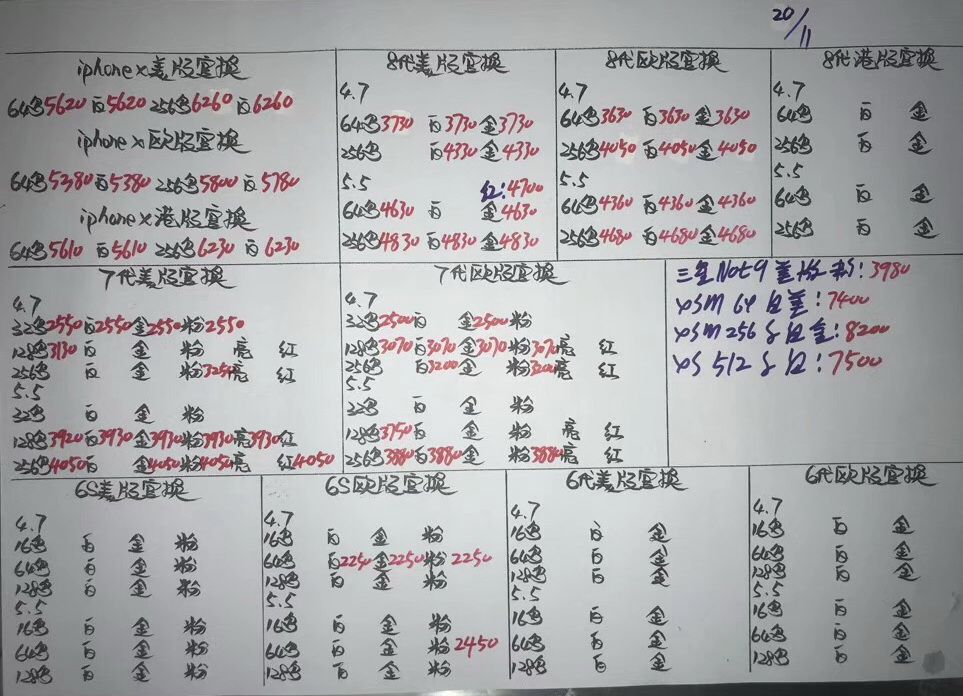 20/11
iphonex美版官换
64色5620白5620 256色6260白6260
iphonex欧版官换
64色5380白5380 256色5800白5780
iphonex港版官换
64色5610白5610 256色6230白6230
8代美版官换
4.7
64色3730 白3730金3730
256色 白4330金4330
5.5 红:4700
64色4630 白 金4630
256色4830白4830金4830
8代欧版官换
4.7
64色3630白3630金3630
256色4050白4050金4050
5.5
64色4360白4360金4360
256色4680白4680金4680
8代港版官换
4.7
64色 白 金
256色 白 金
5.5
64色 白 金
256色 白 金
7代美版官换
4.7
32色2550白2550金2550粉2550
128色3130白 金 粉 亮 红
256色 白 金 粉325亮 红
5.5
32色 白 金 粉
128色3920白3930金3930粉3930亮3930红
256色4050白 金4050粉4050亮 红4050
7代欧版官换
4.7
32色2500白 金2500粉
128色3070白3070金3070粉307亮 红
256色 白3200金 粉320亮 红
5.5
32色 白 金 粉
128色3750白 金 粉 亮 红
256色3880白3880金 粉3880亮 红
三星Not9美版粉:3980
XSM 64 白美:7400
XSM 256 白金:8200
XS 512 白:7500
6S美版官换
4.7
16色 白 金 粉
64色 白 金 粉
128色 白 金 粉
5.5
16色 白 金 粉
64色 白 金 粉
128色 白 金 粉
6S欧版官换
4.7
16色 白 金 粉
64色 白2250金2250粉2250
128色 白 金 粉
5.5
16色 白 金 粉
64色 白 金 粉2450
128色 白 金 粉
6代美版官换
4.7
16色 白 金
64色 白 金
128色 白 金
5.5
16色 白 金
64色 白 金
128色 白 金
6代欧版官换
4.7
16色 白 金
64色 白 金
128色 白 金
5.5
16色 白 金
64色 白 金
128色 白 金